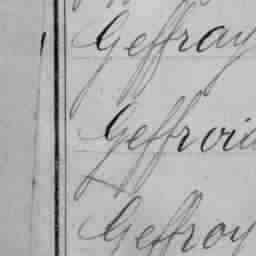 Geffray
Geffroid
Geffroy